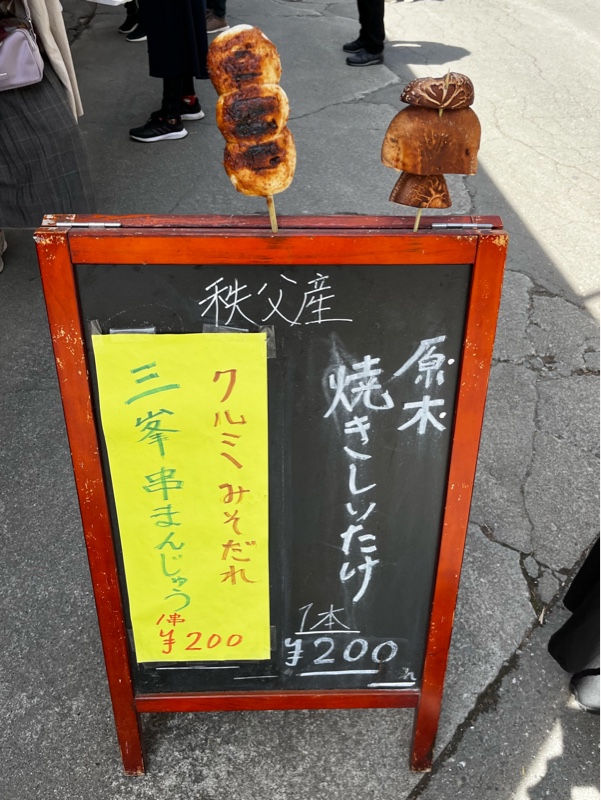 秩父産
原木
焼きしいたけ
1本
¥200
クルミみそだれ
三峯串まんじゅう
1串
¥200